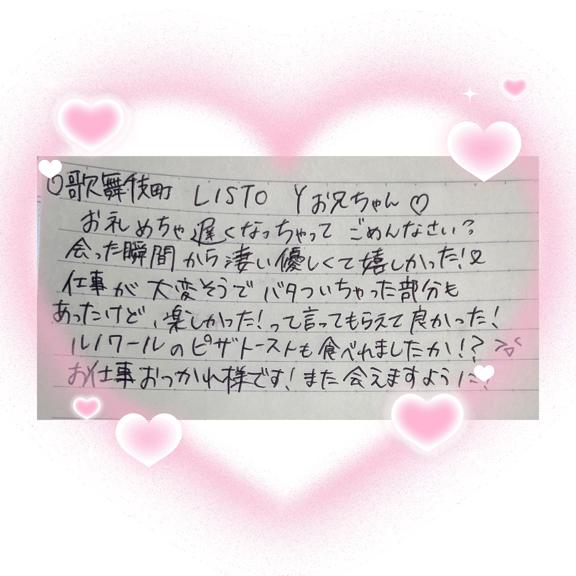 ♡歌舞伎町 LISTO Yお兄ちゃん♡
お礼めちゃ遅くなっちゃって ごめんなさい?
会った瞬間から凄い優しくて嬉しかった!♡
仕事が大変そうでバタついちゃった部分も
あったけど、楽しかった!って言ってもらえて良かった!
ルノワールのピザトーストも食べれましたか!?
お仕事おつかれ様です!また会えますように!